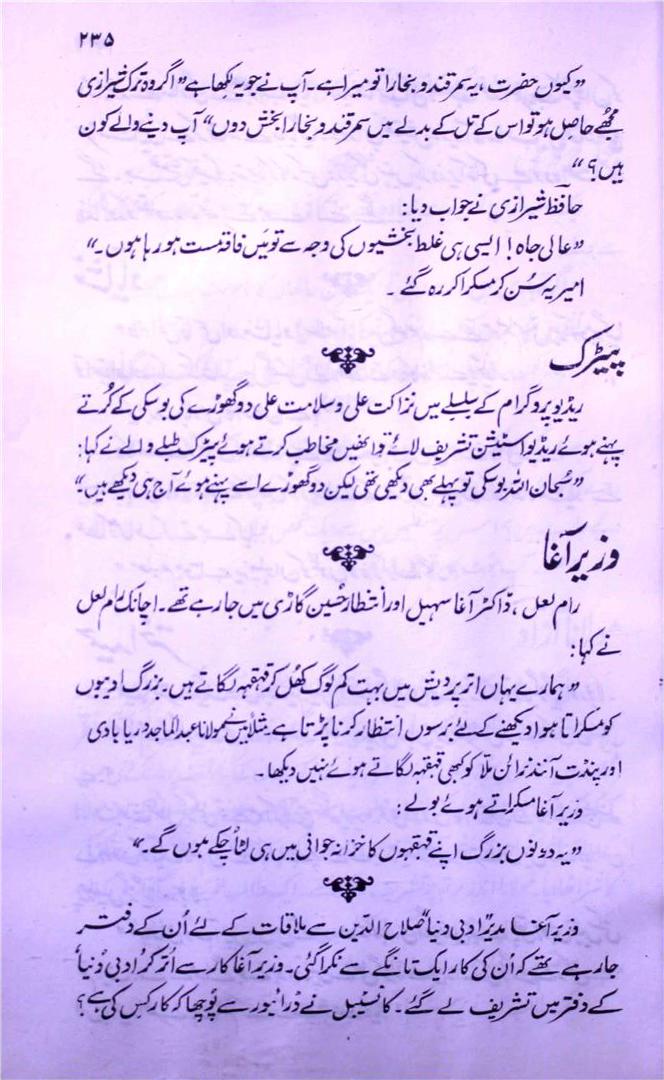 ۲۳۵
”کیوں حضرت، یہ سمرقند و بخارا تو میرا ہے۔ آپ نے جو یہ لکھا ہے ”اگر وہ ترک شیرازی
مجھے حاصل ہو تو اس کے تل کے بدلے میں سمرقند و بخارا بخش دوں“ آپ دینے والے کون
ہیں؟“
حافظ شیرازی نے جواب دیا:
”عالی جاہ! ایسی ہی غلط بخشیوں کی وجہ سے تو میں فاقہ مست ہو رہا ہوں۔“
امیر یہ سُن کر مسکرا کر رہ گئے۔
پیٹرک
ریڈیو پروگرام کے سلسلے میں نزاکت علی و سلامت علی دو گھوڑے کی بوسکی کے کُرتے
پہنے ہوئے ریڈیو اسٹیشن تشریف لائے تو انھیں مخاطب کرتے ہوئے پیٹرک طبلے والے نے کہا:
”سُبحان اللہ بوسکی تو پہلے بھی دیکھی تھی لیکن دو گھوڑے اسے پہنے ہوئے آج ہی دیکھے ہیں۔“
وزیر آغا
رام لعل، ڈاکٹر آغا سہیل اور انتظار حُسین گاڑی میں جا رہے تھے۔ اچانک رام لعل
نے کہا:
”ہمارے یہاں اتر پردیش میں بہت کم لوگ کھُل کر قہقہہ لگاتے ہیں۔ بزرگ ادیبوں
کو مسکراتا ہوا دیکھنے کے لئے برسوں انتظار کرنا پڑتا ہے۔ مثلاً میں نے مولانا عبدالماجد دریابادی
اور پنڈت آنند نرائن ملّا کو کبھی قہقہہ لگاتے ہوئے نہیں دیکھا۔
وزیر آغا مسکراتے ہوئے بولے:
”یہ دونوں بزرگ اپنے قہقہوں کا خزانہ جوانی میں ہی لٹا چکے ہوں گے۔“
وزیر آغا مدیر ”ادبی دنیا“ صلاح الدّین سے ملاقات کے لئے اُن کے دفتر
جا رہے تھے کہ اُن کی کار ایک تانگے سے ٹکرا گئی۔ وزیر آغا کار سے اُتر کر ادبی دُنیا
کے دفتر میں تشریف لے گئے۔ کانسٹیبل نے ڈرائیور سے پُوچھا کہ کار کس کی ہے؟